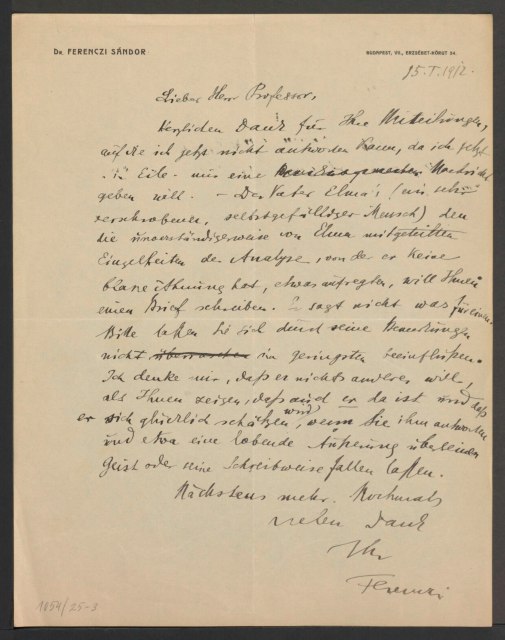 Dr. FERENCZI SÁNDOR
BUDAPEST, VII., ERZSÉBET-KÖRUT 54.
15. I. 1912.
Lieber Herr Professor,
herzlichen Dank für Ihre Mitteilungen,
auf die ich jetzt nicht antworten kann, da ich jetzt
in Eile nur eine Nachricht
geben will. – Der Vater Elma's (ein sehr
verschrobener, selbstgefälliger Mensch) den
die unverständigerweise von Elma mitgeteilten
Einzelheiten der Analyse, von der er keine
blasse Ahnung hat, etwas aufregten, will Ihnen
einen Brief schreiben. Er sagt nicht was für einen.
Bitte lassen Sie sich durch seine Bemerkungen
nicht überraschen im geringsten beeinflußen.
Ich denke mir, daß er nichts anderes will,
als Ihnen zeigen, daß auch er da ist und daß
er sich glücklich schätzen wird, wenn Sie ihm antworten
und etwa eine lobende Äußerung über seinen
Geist oder seine Schreibweise fallen laßen.
Nächstens mehr. Nochmals
vielen Dank
Ihr
Ferenczi
1054/25-3